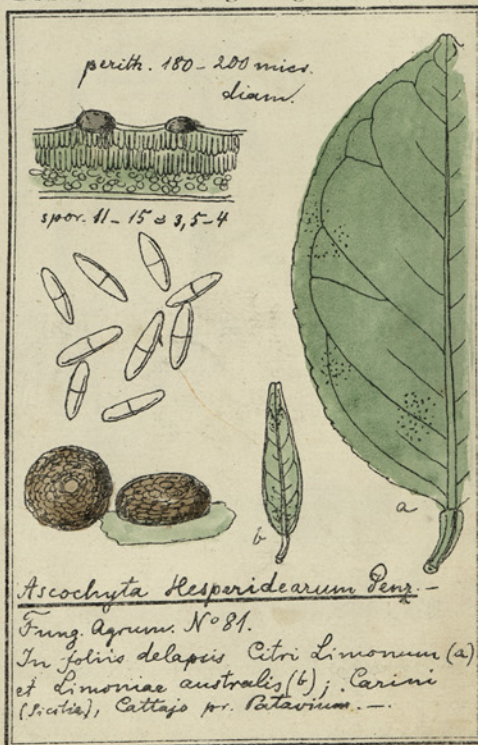 perith. 180 – 200 micr.
diam.
spor. 11 – 15 = 3,5 – 4
a
b
Ascochyta Hesperidearum Penz. –
Fung. Agrum. No 81.
In foliis delapsis Citri Limonum (a)
et Limoniae australis (b); Carini
(Sicilia), Cattajo pr. Patavium. –.